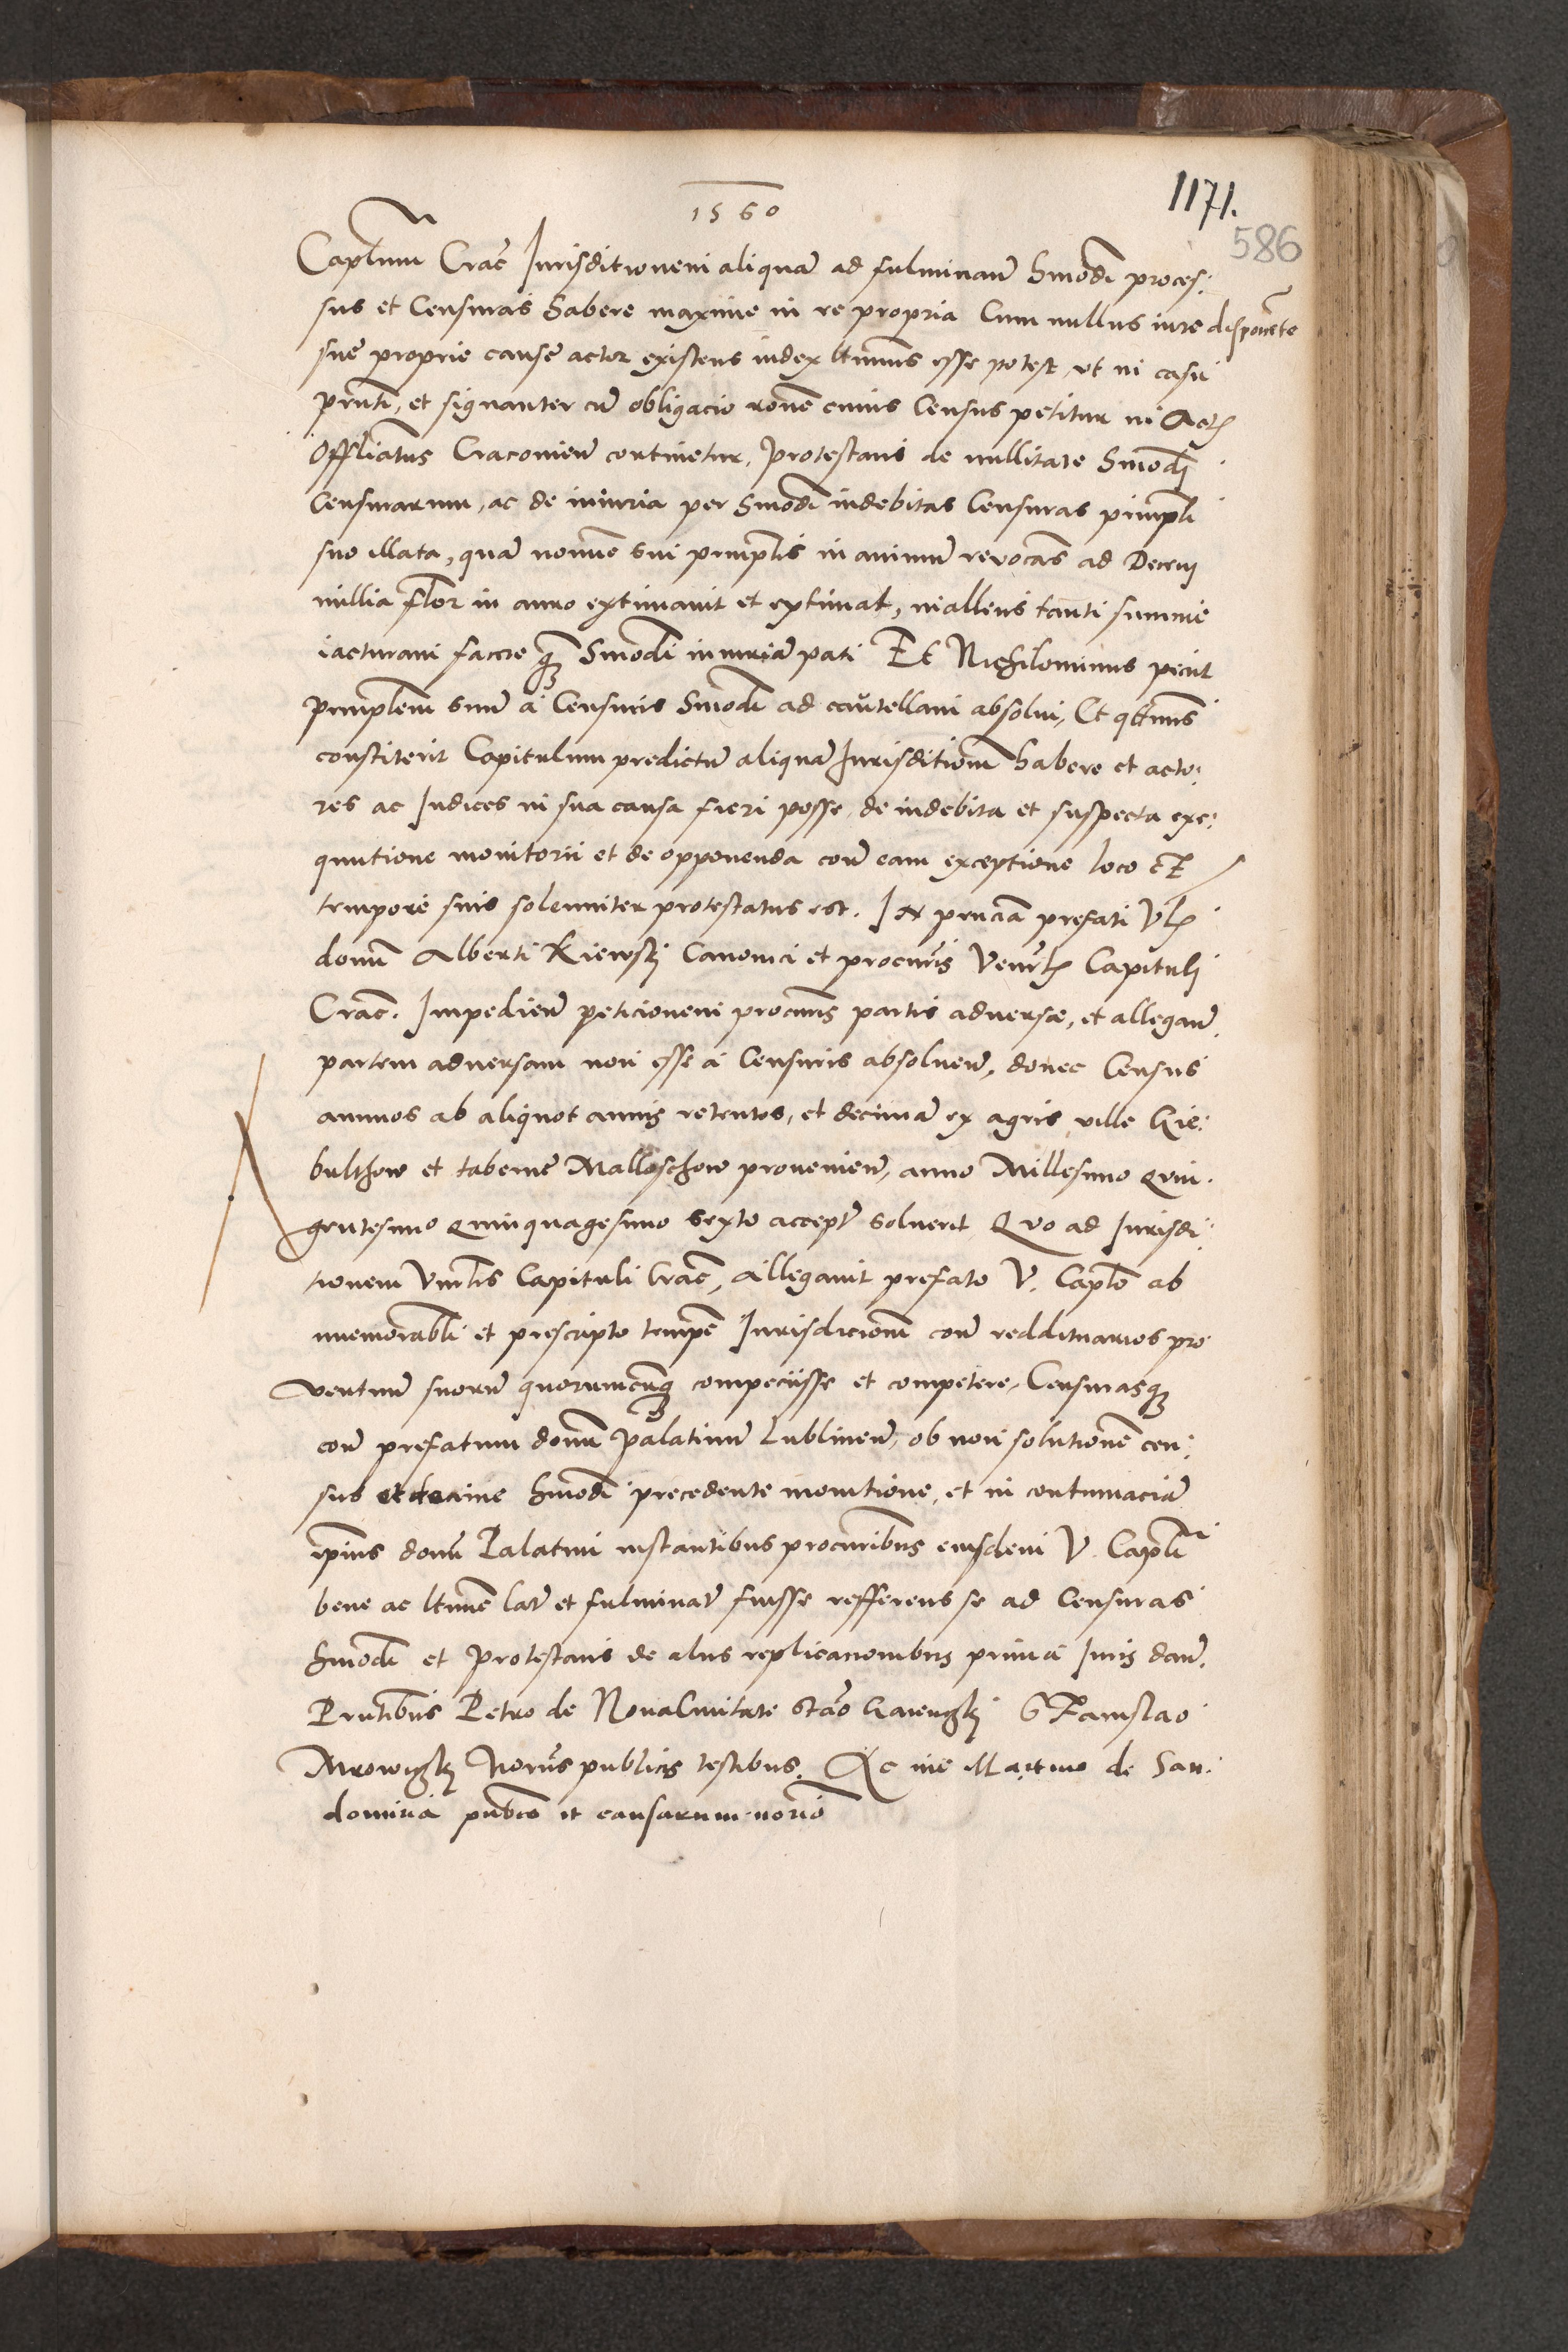 1560
1171.
586
Captlum Crac̃ Jurisditionem aliquã ad fulminan̄ hmōdi proces:
sus et Censuras habere maxime in re propria Cum nullus iure disponẽte
suẽ proprie causẽ actor existens iudex ltimus esse potest, vt in casu
prnti, et signanter cũ obligacio rōne cuius Census petitur in Actis
Offliatus Cracovien̄ continetur, Protestans de nullitate hmōdi
Censurarum, ac de iniuria per hmōdi indebitas Censuras prinpli
suo illata, quã nomĩe sui prinplis in animum revocãs ad Decem
millia flor in auro extimavit et extimat, mallens tanti summe
iacturam facere q̃ hmōdi iniuriã pati Et Nichilominus peciit
prinplem suũ a Censuris hmōdi ad cautellam absolui, Et qtenus
constiterit Capitulum predictũ aliquã Jurisditionem habere et acto:
res ac Judices in sua causa fieri posse, de indebita et suspecta exe:
qutione monitorii et de opponenda con̄ eam exceptione loco et
tempore suis solenniter protestatus est. In pn̄ciã prefati Vlis
domĩ Alberti Kiewski Canonici et procuris Venrlis Capituli
Crac̃. Impedien̄ peticionem procuris partis adversæ, et allegan̄
partem adversam non esse a Censuris absoluen̄, donec Census
annuos ab aliquot annis retentos, et decimã ex agris ville Gie:
bulthow et tabernẽ Malloschow provenien̄, anno Millesimo Quin:
gentesimo Quinquagesimo sexto accept̃ soluerit Quo ad Jurisdi:
tionem Vnrlis Capituli Crac̃, Allegavit prefato V. Capto ab
immemorabli et prescripto tempẽ Jurisdicionem con̄ reddituarios pro
ventuũ suorũ quorumcũq̃ compeciisse et competere, Censurasq̃
con̄ prefatum domũ Palatinũ Lublinen̄, ob non solutionẽ cen:
sus et decime hmōdi precedente monitione, et in contumaciã
ipius domĩ Palatini instantibus procuribus eiusdem V. Captli
bene ac ltimẽ lat̃ et fulminat̃ fuisse refferens se ad Censuras
hmōdi et Protestans de aliis replicationibus primã Juris dan̄.
Prntibus Petro de NovaCivitate Stão Gaiewski Stanislao
Mrowiński Noriis publicis testibus. Ac me Martino de San:
domiria publco et causarum norio